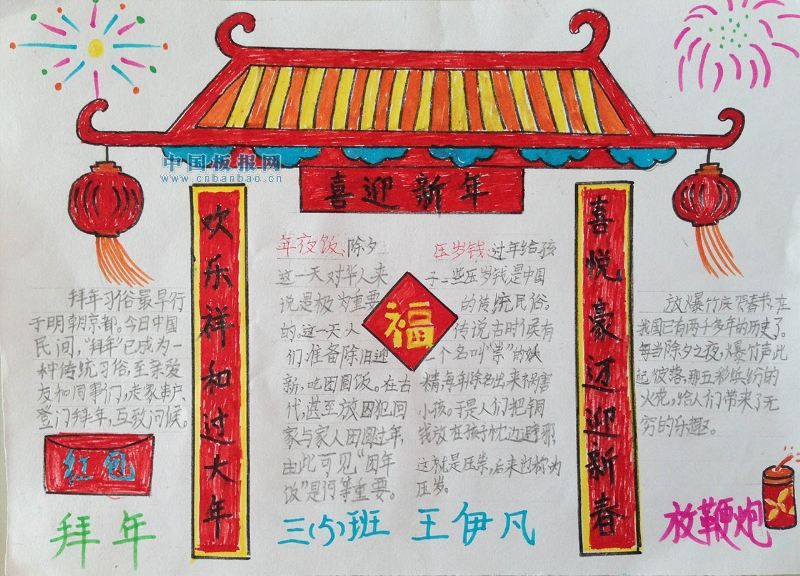 中国板报网
www.cnbanbao.cn
喜迎新年
欢乐祥和过大年
喜悦豪迈迎新春
拜年习俗最早行
于明朝京都。今日中国
民间，“拜年”已成为一
种传统习俗，至亲爱
友和同事们，走家串户
登门拜年，互致问候。
红包
拜年
年夜饭、除夕
这一天对华人来
说是极为重要
的。这一天人
们，准备除旧迎
新，吃团圆饭。在古
代，甚至放囚犯回
家与家人团圆过年，
由此可见“团年
饭”是何等重要。
福
压岁钱、过年给孩
子一些压岁钱是中国
的传统民俗。
传说古时候有
一个名叫“祟”的妖
精，每年除夕出来祸害
小孩。于是人们把铜
钱放在孩子枕边避邪
这就是压祟，后来也称为
压岁。
三(5)班 王伊凡
放爆竹庆贺春节，在
我国已有两千多年的历史了。
每当除夕之夜，爆竹声此
起彼落，那五彩缤纷的
火花，给人们带来了无
穷的乐趣。
放鞭炮